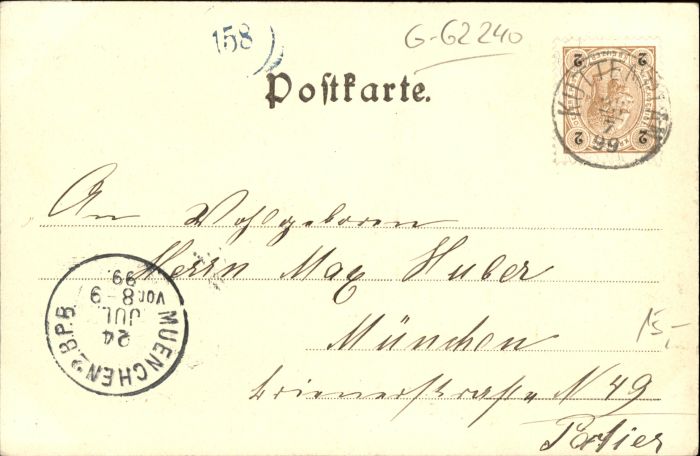 158
G-G2240
Postkarte.
2 2
2 2
99
An Wohlgeboren
Herrn Max Huber
München
15,-
Brienerstraße N 49
Partier
MUENCHEN 2. B.P.B.
24
JUL.
VOR. 8-9
99.